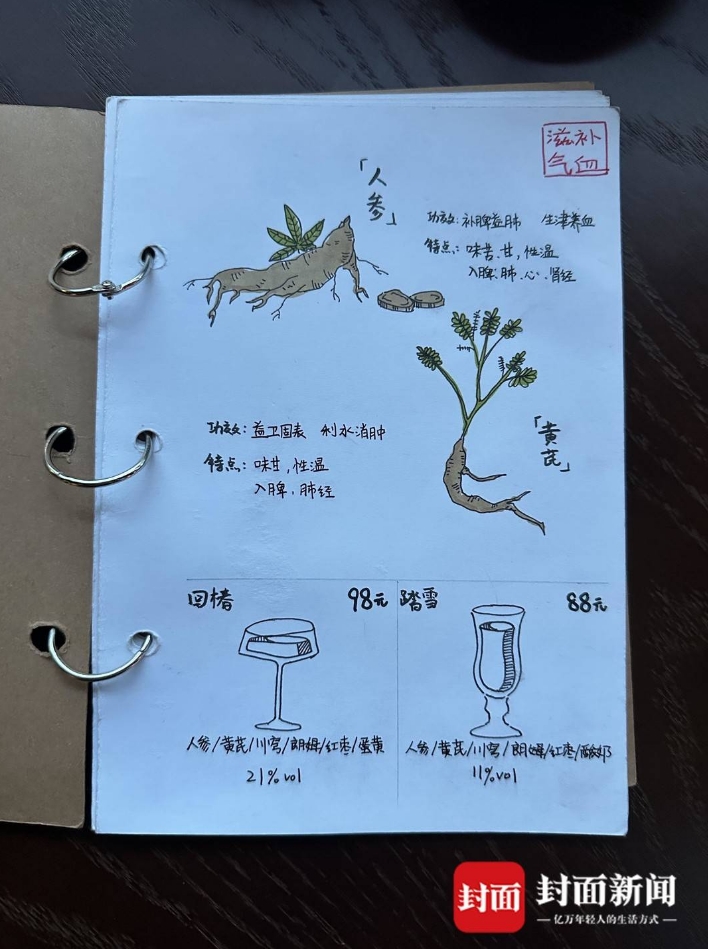 滋补
气血
「人参」
功效：补脾益肺 生津养血
特点：味苦、甘，性温
入脾、肺、心、肾经
「黄芪」
功效：益卫固表 利水消肿
特点：味甘，性温
入脾、肺经
回椿 98元
人参/黄芪/川穹/朗姆/红枣/蛋黄
21%vol
踏雪 88元
人参/黄芪/川穹/朗姆/红枣/酸奶
11%vol
封面
封面新闻
亿万年轻人的生活方式